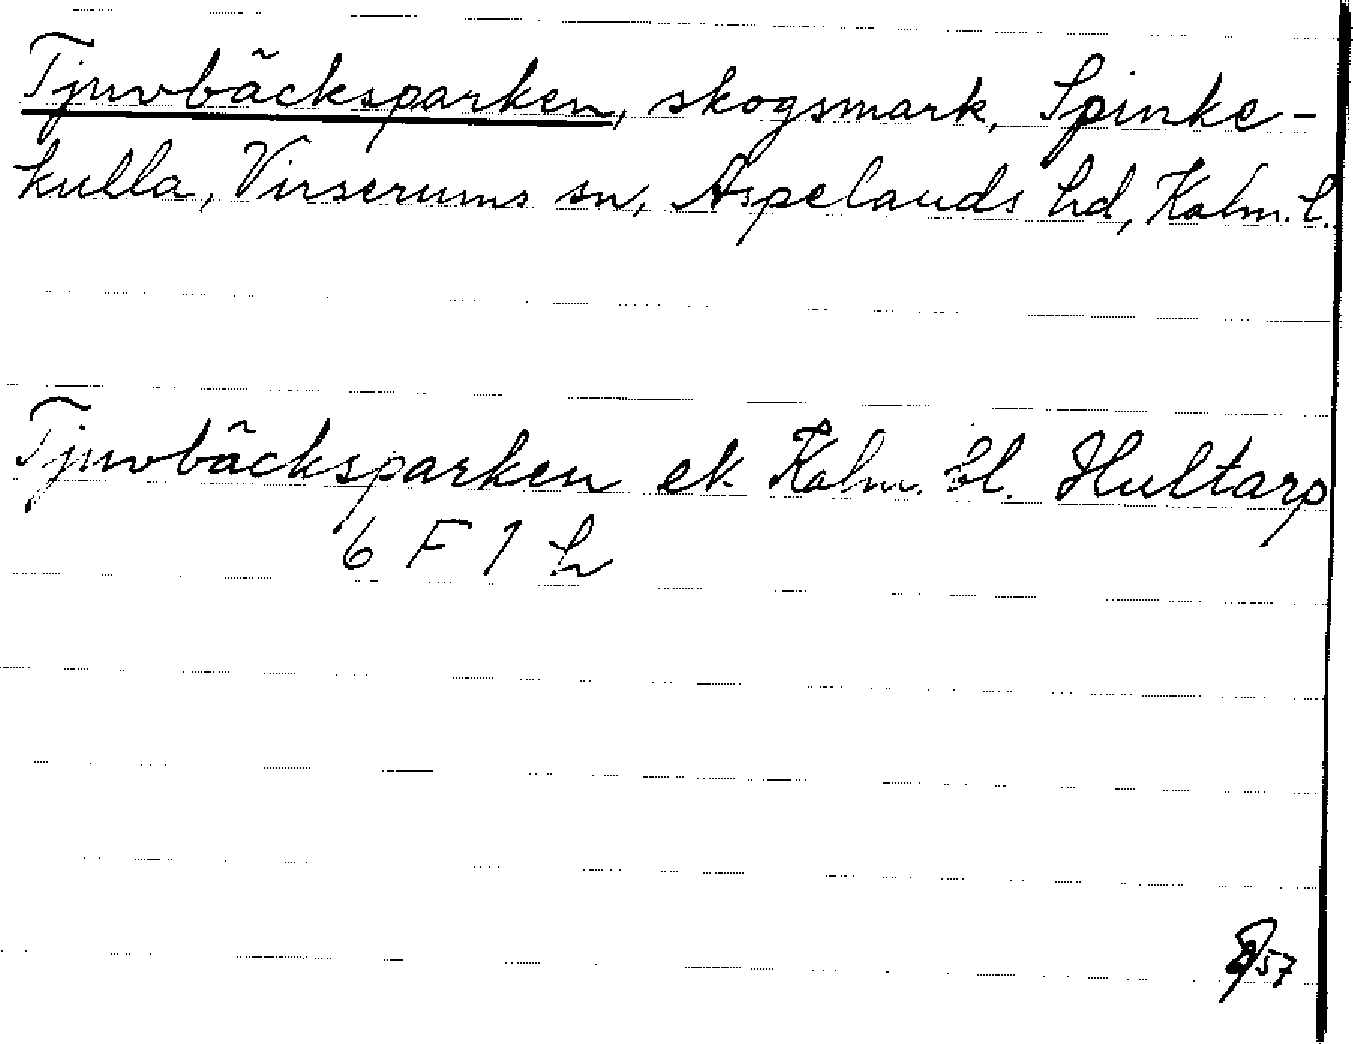 Tjuvbäcksparken, skogsmark, Spinke-
kulla, Virserums sn, Aspelands hd, Kalm. l.
Tjuvbäcksparken ek Kalm. bl. Hultarp
6 F 1 h
57